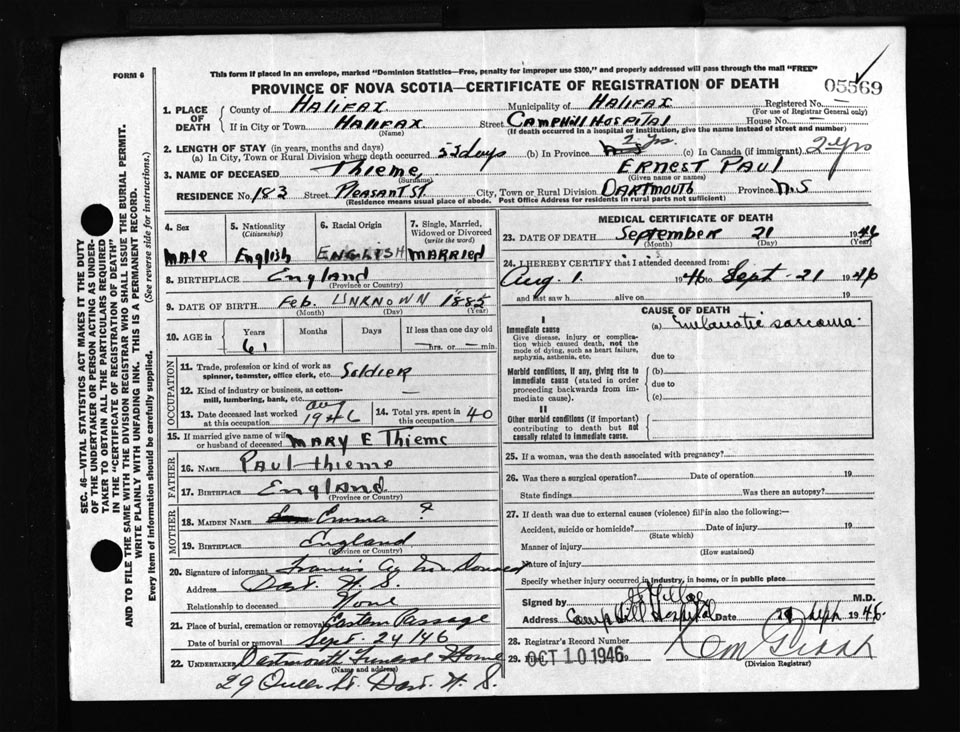 FORM 6
This form if placed in an envelope, marked "Dominion Statistics—Free, penalty for improper use $300," and properly addressed will pass through the mail "FREE"
05569
PROVINCE OF NOVA SCOTIA—CERTIFICATE OF REGISTRATION OF DEATH
1. PLACE OF DEATH
County of HALIFAX Municipality of HALIFAX Registered No. —
(For use of Registrar General only)
If in City or Town HALIFAX Street CAMPHILL HOSPITAL House No. —
(Name) (If death occurred in a hospital or institution, give the name instead of street and number)
2. LENGTH OF STAY (in years, months and days)
(a) In City, Town or Rural Division where death occurred 52 days (b) In Province 2 yrs. (c) In Canada (if immigrant) 2 yrs
3. NAME OF DECEASED Thieme, ERNEST PAUL
(Surname) (Given name or names)
RESIDENCE No. 183 Street PLEASANT ST. City, Town or Rural Division DARTMOUTH Province N.S
(Residence means usual place of abode. Post Office Address for residents in rural parts not sufficient)
4. Sex
MALE
5. Nationality
(Citizenship)
English
6. Racial Origin
ENGLISH
7. Single, Married, Widowed or Divorced
(write the word)
MARRIED
8. BIRTHPLACE England
(Province or Country)
9. DATE OF BIRTH Feb. UNKNOWN 1885
(Month) (Day) (Year)
10. AGE in
Years Months Days If less than one day old
61 —hrs. or —min.
OCCUPATION
11. Trade, profession or kind of work as spinner, teamster, office clerk, etc. SOLDIER
12. Kind of industry or business, as cotton-mill, lumbering, bank, etc. —
13. Date deceased last worked at this occupation Aug 1946
14. Total yrs. spent in 40
15. If married give name of wife or husband of deceased MARY E Thieme
FATHER
16. NAME PAUL thieme
17. BIRTHPLACE England
(Province or Country)
MOTHER
18. MAIDEN NAME Emma ?
19. BIRTHPLACE England
(Province or Country)
20. Signature of informant Francis
Address Dart. N. S.
Relationship to deceased None
21. Place of burial, cremation or removal Eastern Passage
Date of burial or removal Sept. 24/46
22. UNDERTAKER Dartmouth Funeral Home
(Name and address)
29 Queen St. Dart. N. S.
MEDICAL CERTIFICATE OF DEATH
23. DATE OF DEATH September 21 1946
(Month) (Day) (Year)
24. I HEREBY CERTIFY that I attended deceased from:
Aug. 1 1946 to Sept - 21 1946
and last saw h alive on 19
CAUSE OF DEATH
I
Immediate cause
Give disease, injury or complication which caused death, not the mode of dying, such as heart failure, asphyxia, asthenia, etc.
(a) sarcoma.
due to
Morbid conditions, if any, giving rise to immediate cause (stated in order proceeding backwards from immediate cause).
(b)
due to
(c)
II
Other morbid conditions (if important) contributing to death but not causally related to immediate cause.
25. If a woman, was the death associated with pregnancy?
26. Was there a surgical operation? Date of operation 19
State findings Was there an autopsy?
27. If death was due to external causes (violence) fill in also the following:—
Accident, suicide or homicide? Date of injury 19
(State which)
Manner of injury
(How sustained)
Nature of injury
Specify whether injury occurred in industry, in home, or in public place
Signed by M.D.
Address Camp Hill Hospital Date Sept 1946.
28. Registrar's Record Number
29. OCT 10 1946 9
(Division Registrar)
SEC. 46—VITAL STATISTICS ACT MAKES IT THE DUTY
OF THE UNDERTAKER OR PERSON ACTING AS UNDER-
TAKER TO OBTAIN ALL THE PARTICULARS REQUIRED
IN THE "CERTIFICATE OF REGISTRATION OF DEATH"
AND TO FILE THE SAME WITH THE DIVISION REGISTRAR WHO SHALL ISSUE THE BURIAL PERMIT.
WRITE PLAINLY WITH UNFADING INK. THIS IS A PERMANENT RECORD.
Every item of information should be carefully supplied. (See reverse side for instructions.)